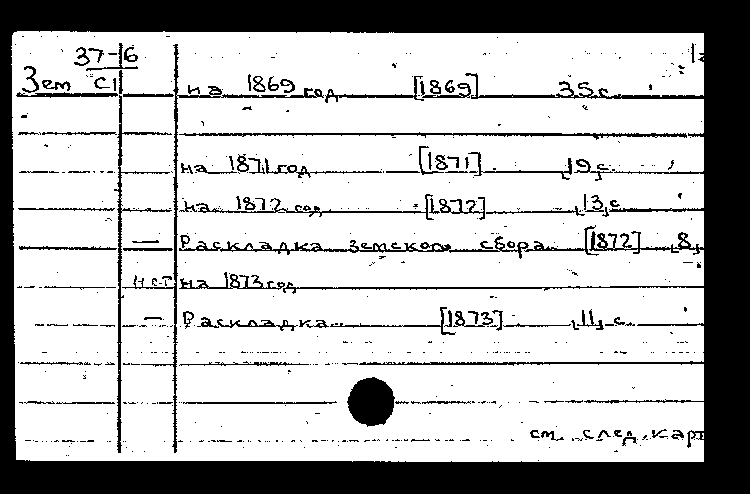 37-6
Зем С1 на 1869 год [1869] 35 с.
на 1871 год [1871] 19 с.
на 1872 год [1872] 13 с.
— Раскладка земского сбора [1872] 8
н.с.т на 1873 год
— Раскладка... [1873] 11 с.
см. след. карт